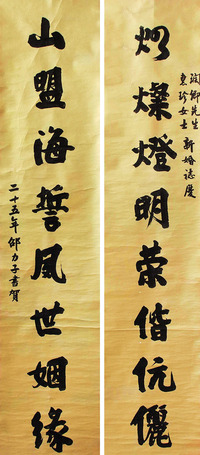 卿先生
珍女士 新婚誌慶
燦燈明榮偕伉儷
山盟海誓夙世姻緣
二十五年邵力子書賀